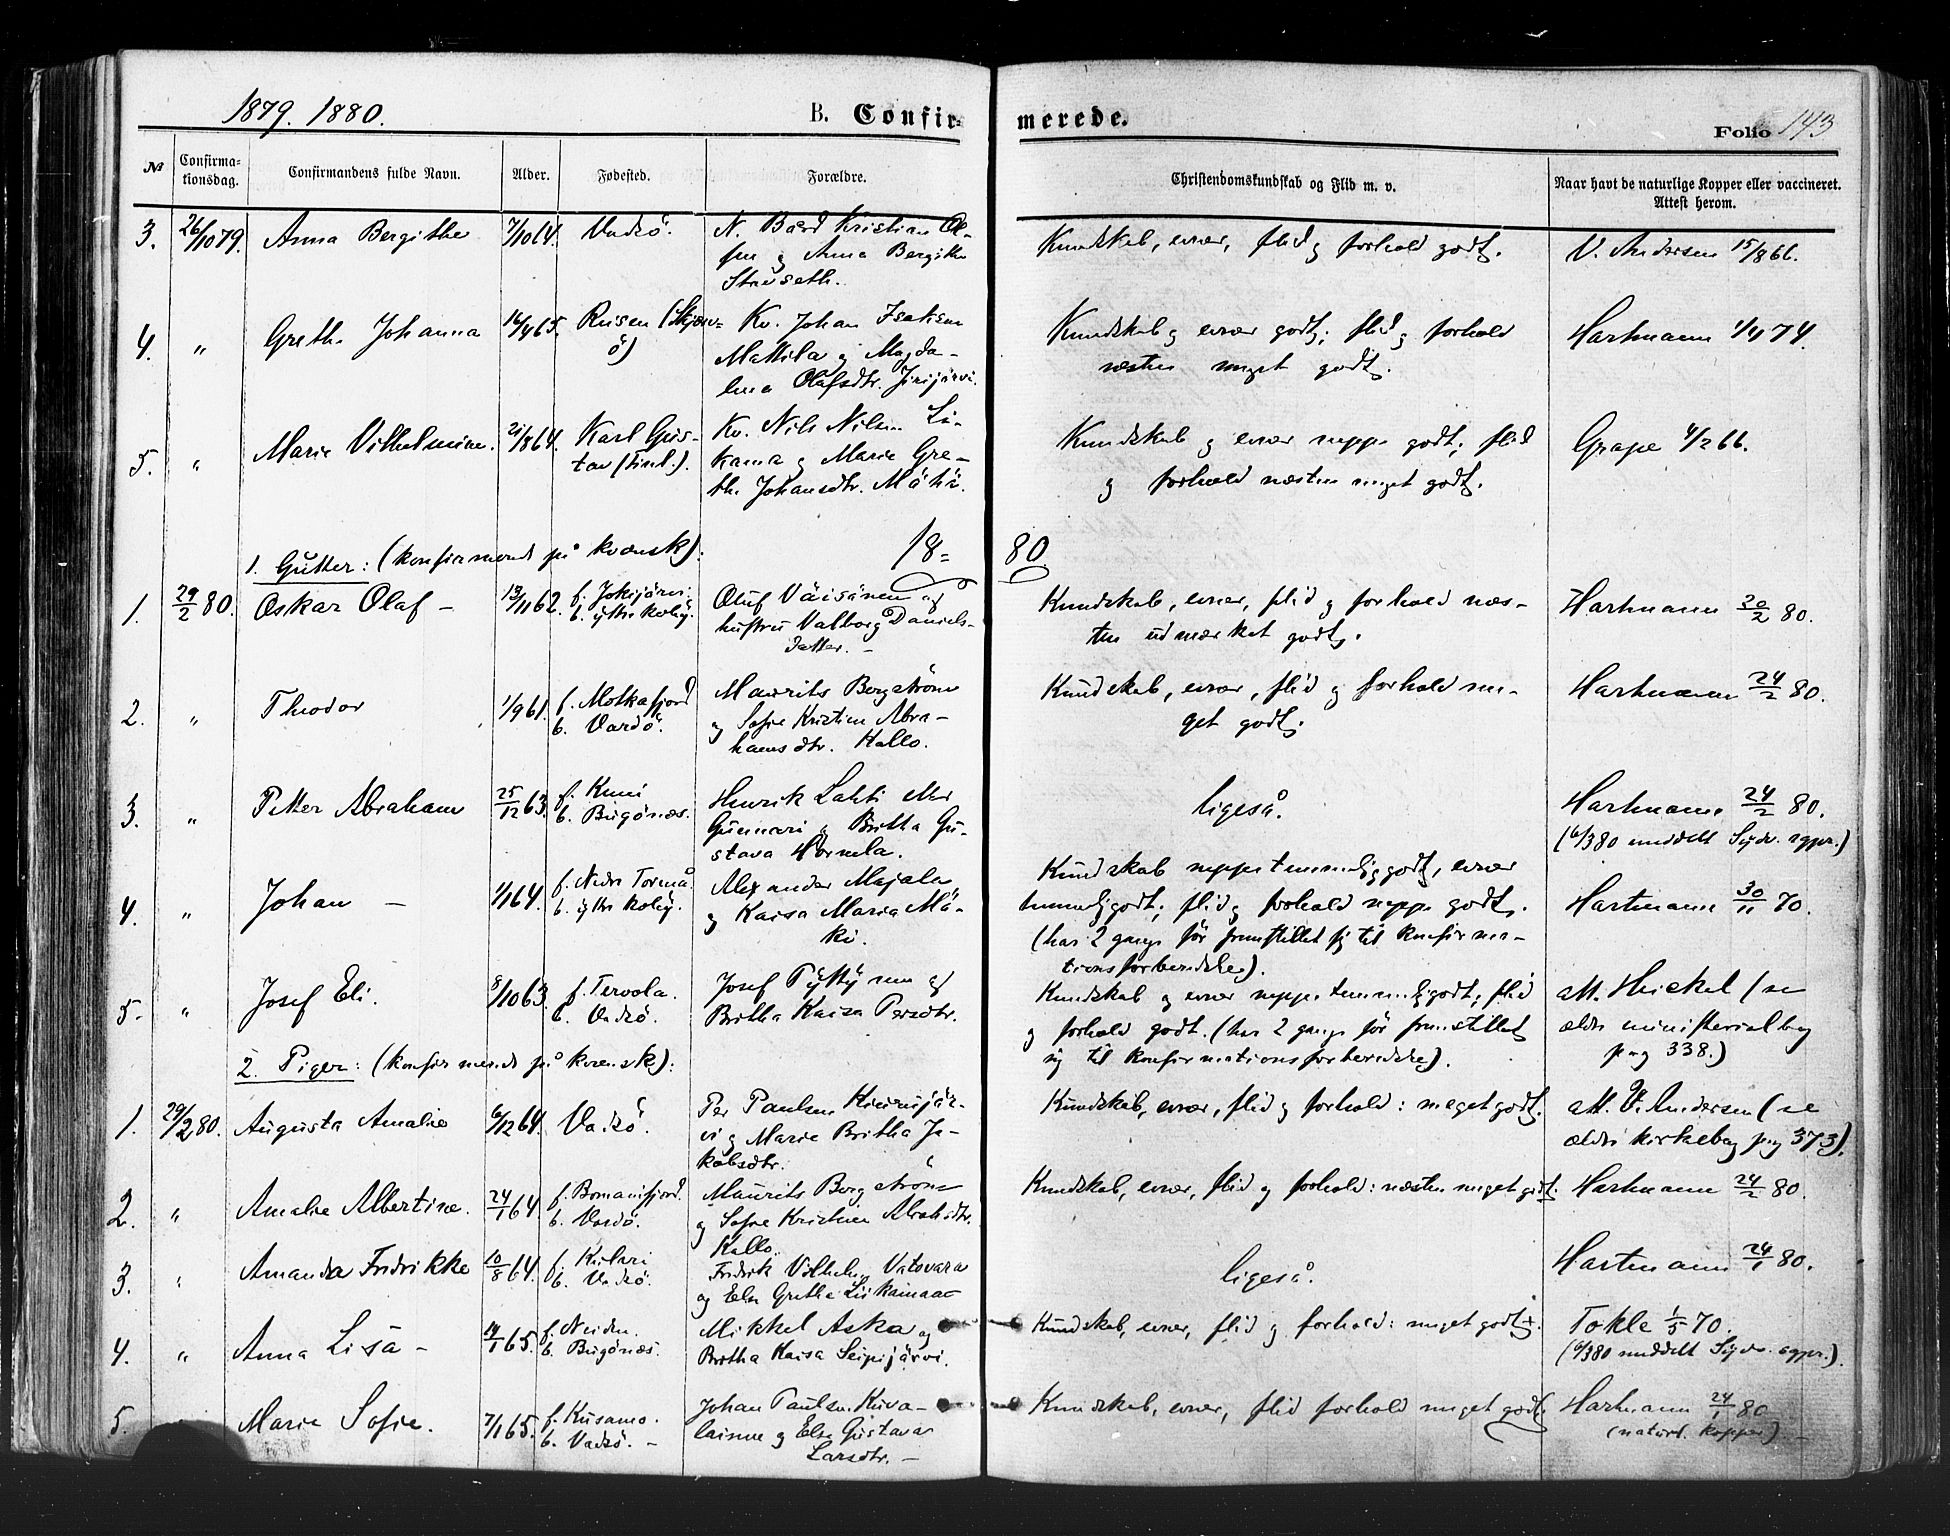 1879. 1880.
B. Confir-merede.
Folio 143
№
Confirma-
tionsdag.
Confirmandens fulde Navn.
Alder.
Fødested.
Forældre.
Christendomskundskab og Flid m. v.
Naar havt de naturlige Kopper eller vaccineret.
Attest herom.
3. 26/10 79. Anna Bergithe 7/10 64. Vadsö.
N. Baard Kristian Ol-
sen og Anna Bergithe
Stavseth.
Kundskab, evner, flid og forhold godt.
V. Andersen 15/8 66.
4. " Grethe Johanna 14/4 65. Reisen (Skjærv-
ö)
Kv. Johan Isaksen
Mattila og Magda-
lena Olafsdtr. Jirijärvi.
Kundskab og evner godt; flid og forhold
næsten meget godt.
Hartmann 1/4 74.
5. " Marie Vilhelmine. 21/8 64. Karl Gus-
tav (Finl.).
Kv. Nils Nilsen Li-
kama og Marie Gre-
the Johansdtr. Mähä.
Kundskab og evner neppe godt; flid
og forhold næsten meget godt.
Grape 4/2 66.
18-80.
1. Gutter: (konfirmeret på kvænsk).
1. 29/2 80. Oskar Olaf - 13/11 62. f. Jokijärvi.
b. ytre Kolig.
Oluf Väisänen og
hustru Valborg Daniels-
datter. -
Kundskab, evner, flid og forhold næs-
ten udmærket godt.
Hartmann 20/2 80.
2. " Theodor 1/9 61. f. Motkafjord
b. Vardö.
Maurits Bergström
og Sofie Kristine Abra-
hamsdtr. Kallo.
Kundskab, evner, flid og forhold me-
get godt.
Hartmann 24/2 80.
3. " Petter Abraham 25/12 63. f. Kemi
b. Bugönæs.
Henrik Lahti eller
Gunnari og Britha Gu-
stava Hornela.
ligeså.
Hartmann 24/2 80.
(6/3 80 meddelt Sydv. sgpr.)
4. " Johan - 1/1 64. f. Nedre Torneå
b. ytre Kolig.
Alexander Majala
og Kaisa Maria Mä-
ki.
Kundskab neppe temmelig godt, evner
temmelig godt; flid og forhold neppe godt.
(har 2 gange för fremstillet sig til konfirma-
tionsforberedelse).
Hartmann 30/11 70.
5. " Josef Eli. 8/10 63. f. Tervola.
b. Vadsö.
Josef Pÿttÿnen og
Britha Kaisa Persdtr.
Kundskab og evner neppe temmelig godt; flid
og forhold godt. (har 2 gange för fremstillet
sig til konfirmationsforberedelse).
att. Heickel (se
ældre ministerialbog
pag 338.)
2. Piger: (konfirmeret på kvensk):
1. 29/2 80. Augusta Amalie 6/12 64. Vadsö.
Per Paulsen Kinnujär-
vi og Marie Britha Ja-
kobsdtr.
Kundskab, evner, flid og forhold: meget godt.
att. V. Andersen (se
ældre kirkebog pag 373).
2. " Amalie Albertine. 24/1 64. f. Bomanifjord.
b. Vardö.
Maurits Bergström
og Sofie Kristine Abrahsdtr.
Kallo.
Kundskab, evner, flid og forhold: næsten meget godt.
Hartmann 24/2 80.
3. " Amanda Fredrikke 10/8 64. f. Kolari
b. Vadsö.
Fredrik Vilhelm Vatovara
og Else Grethe Liikamaa-
ligeså.
Hartmann 24/1 80.
4. " Anna Lisa - 14/1 65. f. Neiden.
b. Bugönæs.
Mikkel Aska og
Britha Kaisa Seipijärvi.
Kundskab, evner, flid og forhold: meget godt.
Tokle 1/5 70.
(6/3 80 meddelt Sydv. sgpr.).
5. " Marie Sofie. 7/1 65. f. Kusamo.
b. Vadsö. -
Johan Paulsen Kuva-
lainen og Else Gustava
Larsdtr. -
Kundskab, evner, flid forhold meget godt.
Hartmann 24/1 80
(naturl. Kopper) -